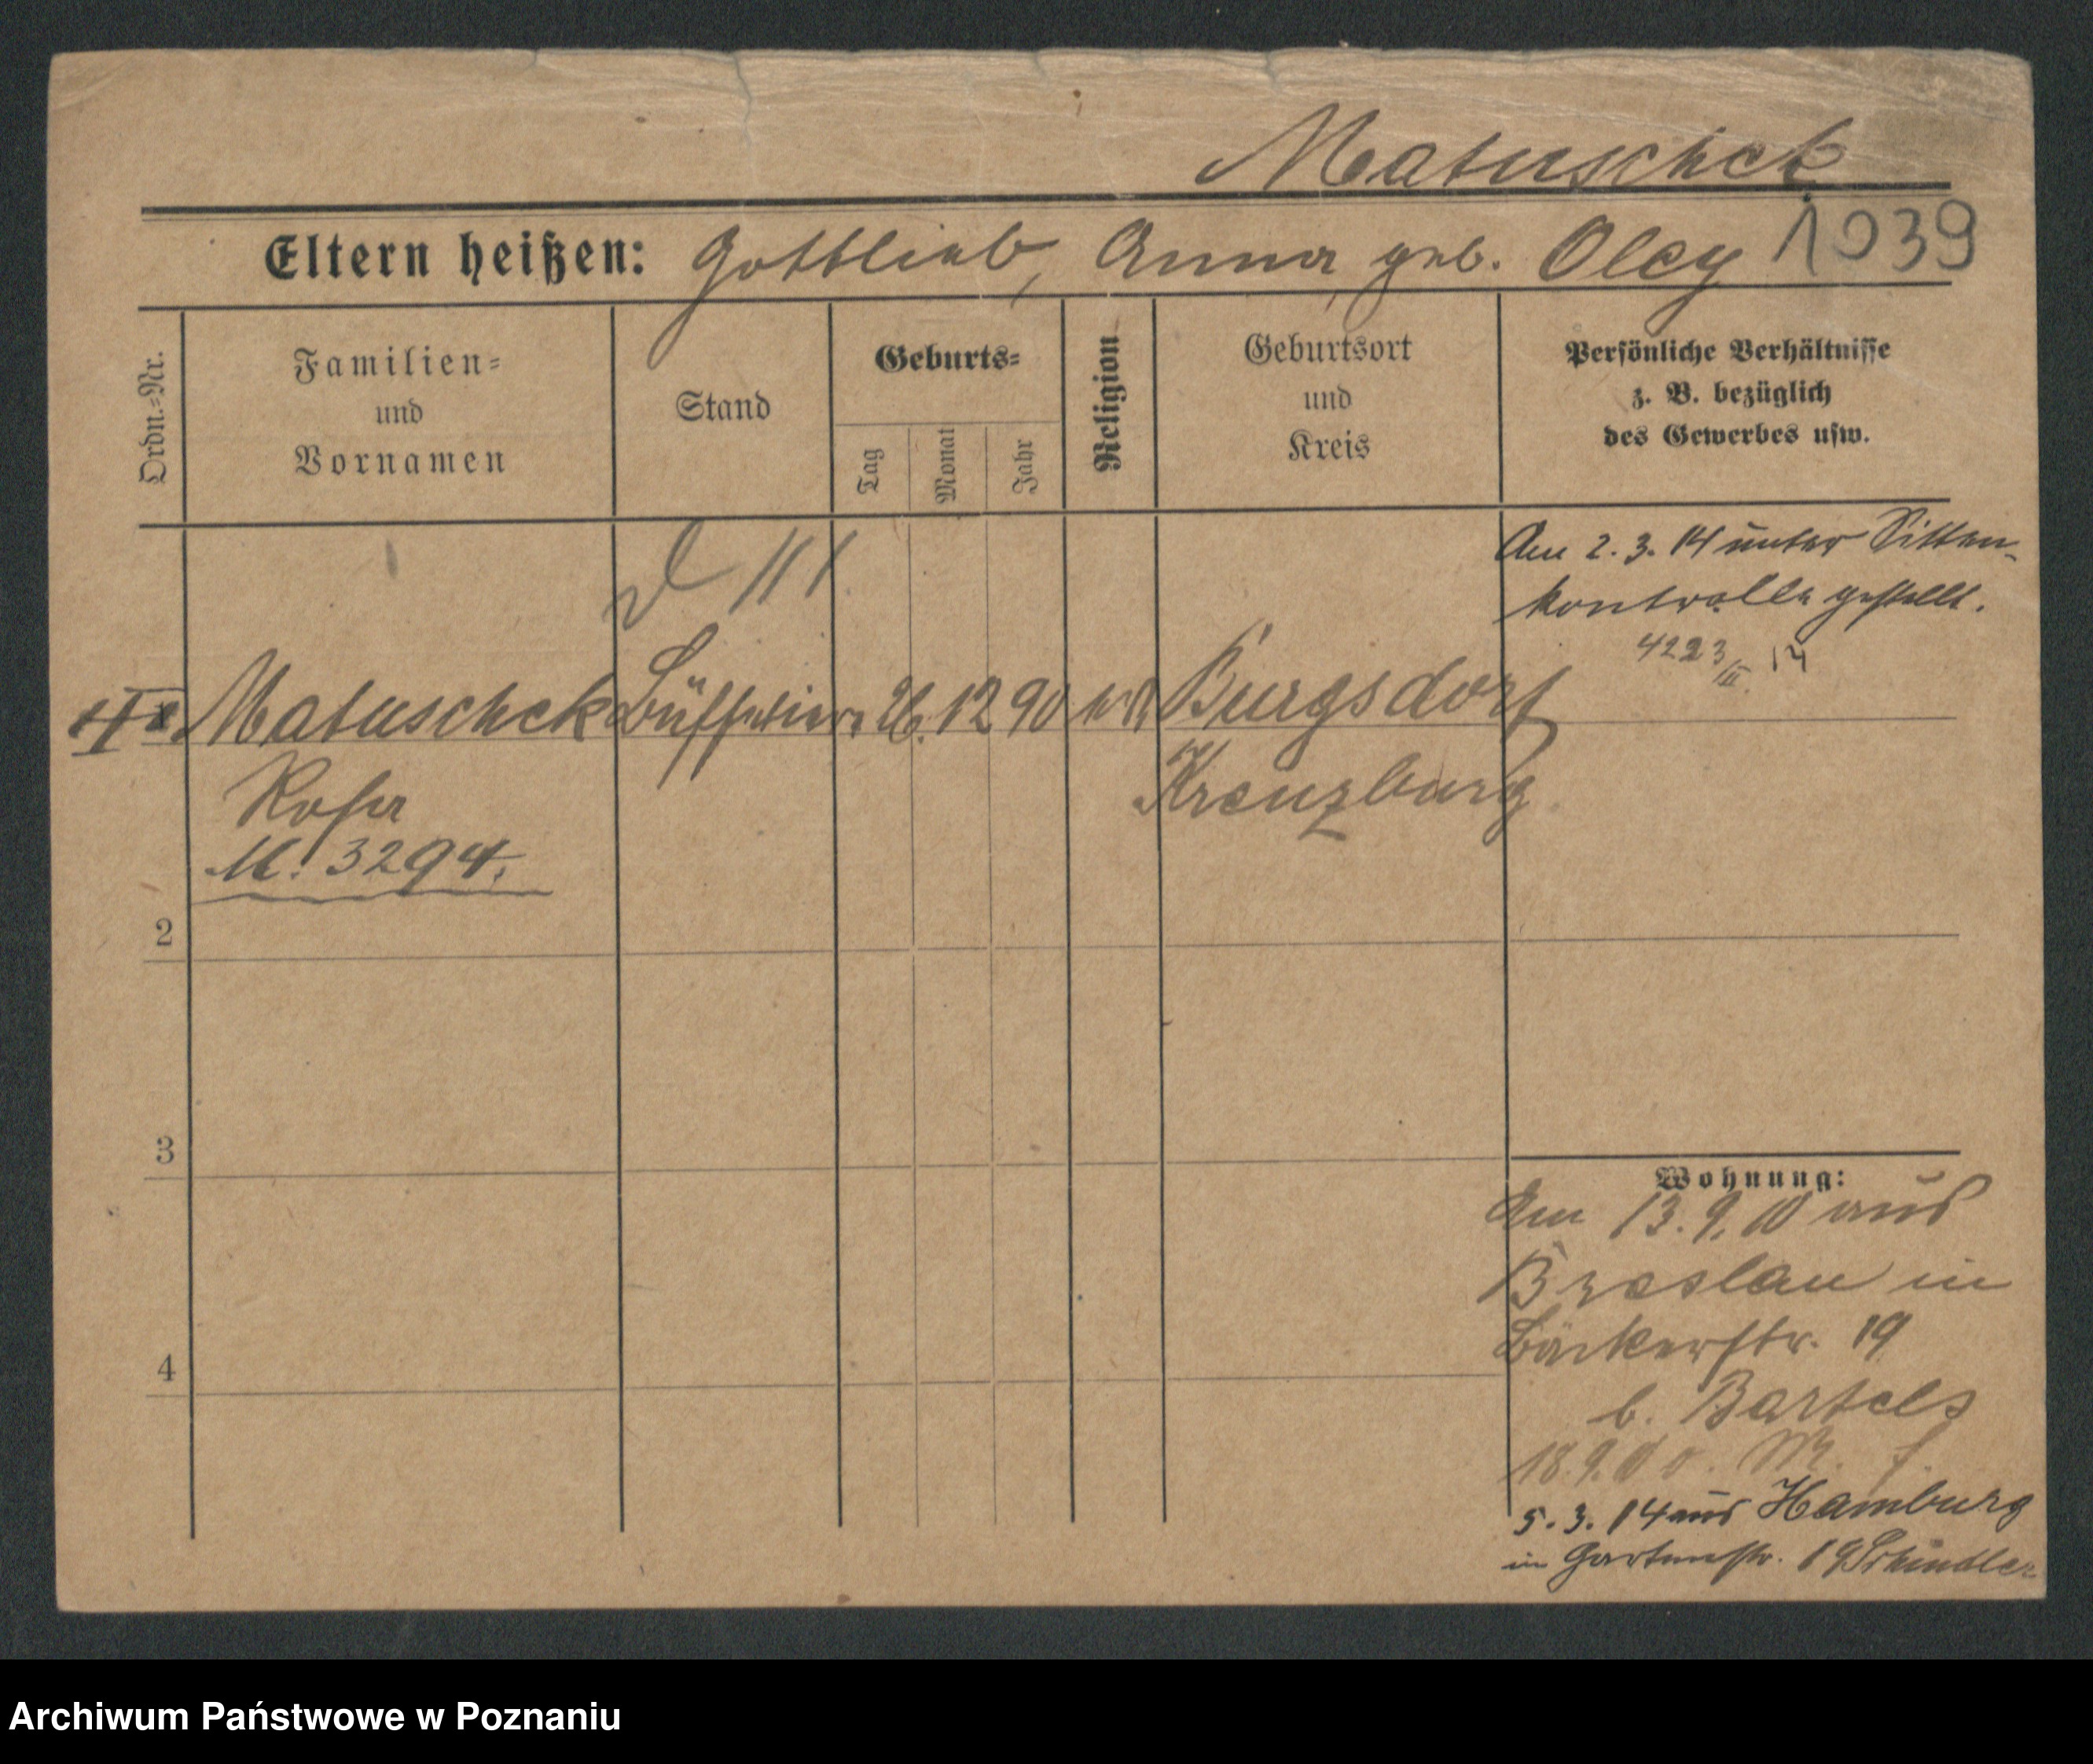 Matuschek
Eltern heißen: Gottlieb, Anna geb. Oley 1939
Ordn.-Nr.
Familien- und Vornamen
Stand
Geburts-
Tag
Monat
Jahr
Religion
Geburtsort und Kreis
Persönliche Verhältnisse
z. B. bezüglich
des Gewerbes usw.
Am 2. 3. 14 unter Sitten-
kontrolle gestellt.
4223/II. 14
Matuschek Büffetiere 26. 12 90 Burgsdorf
Rosa Kreuzburg
M. 3294.
2
3
4
Wohnung:
Am 13. 9. 10 aus
Breslau in
Bäckerstr. 19
b. Bartels
18. 9. 10
5. 3. 14 aus Hamburg
in Gartenstr. 19 Schindler
Archiwum Państwowe w Poznaniu